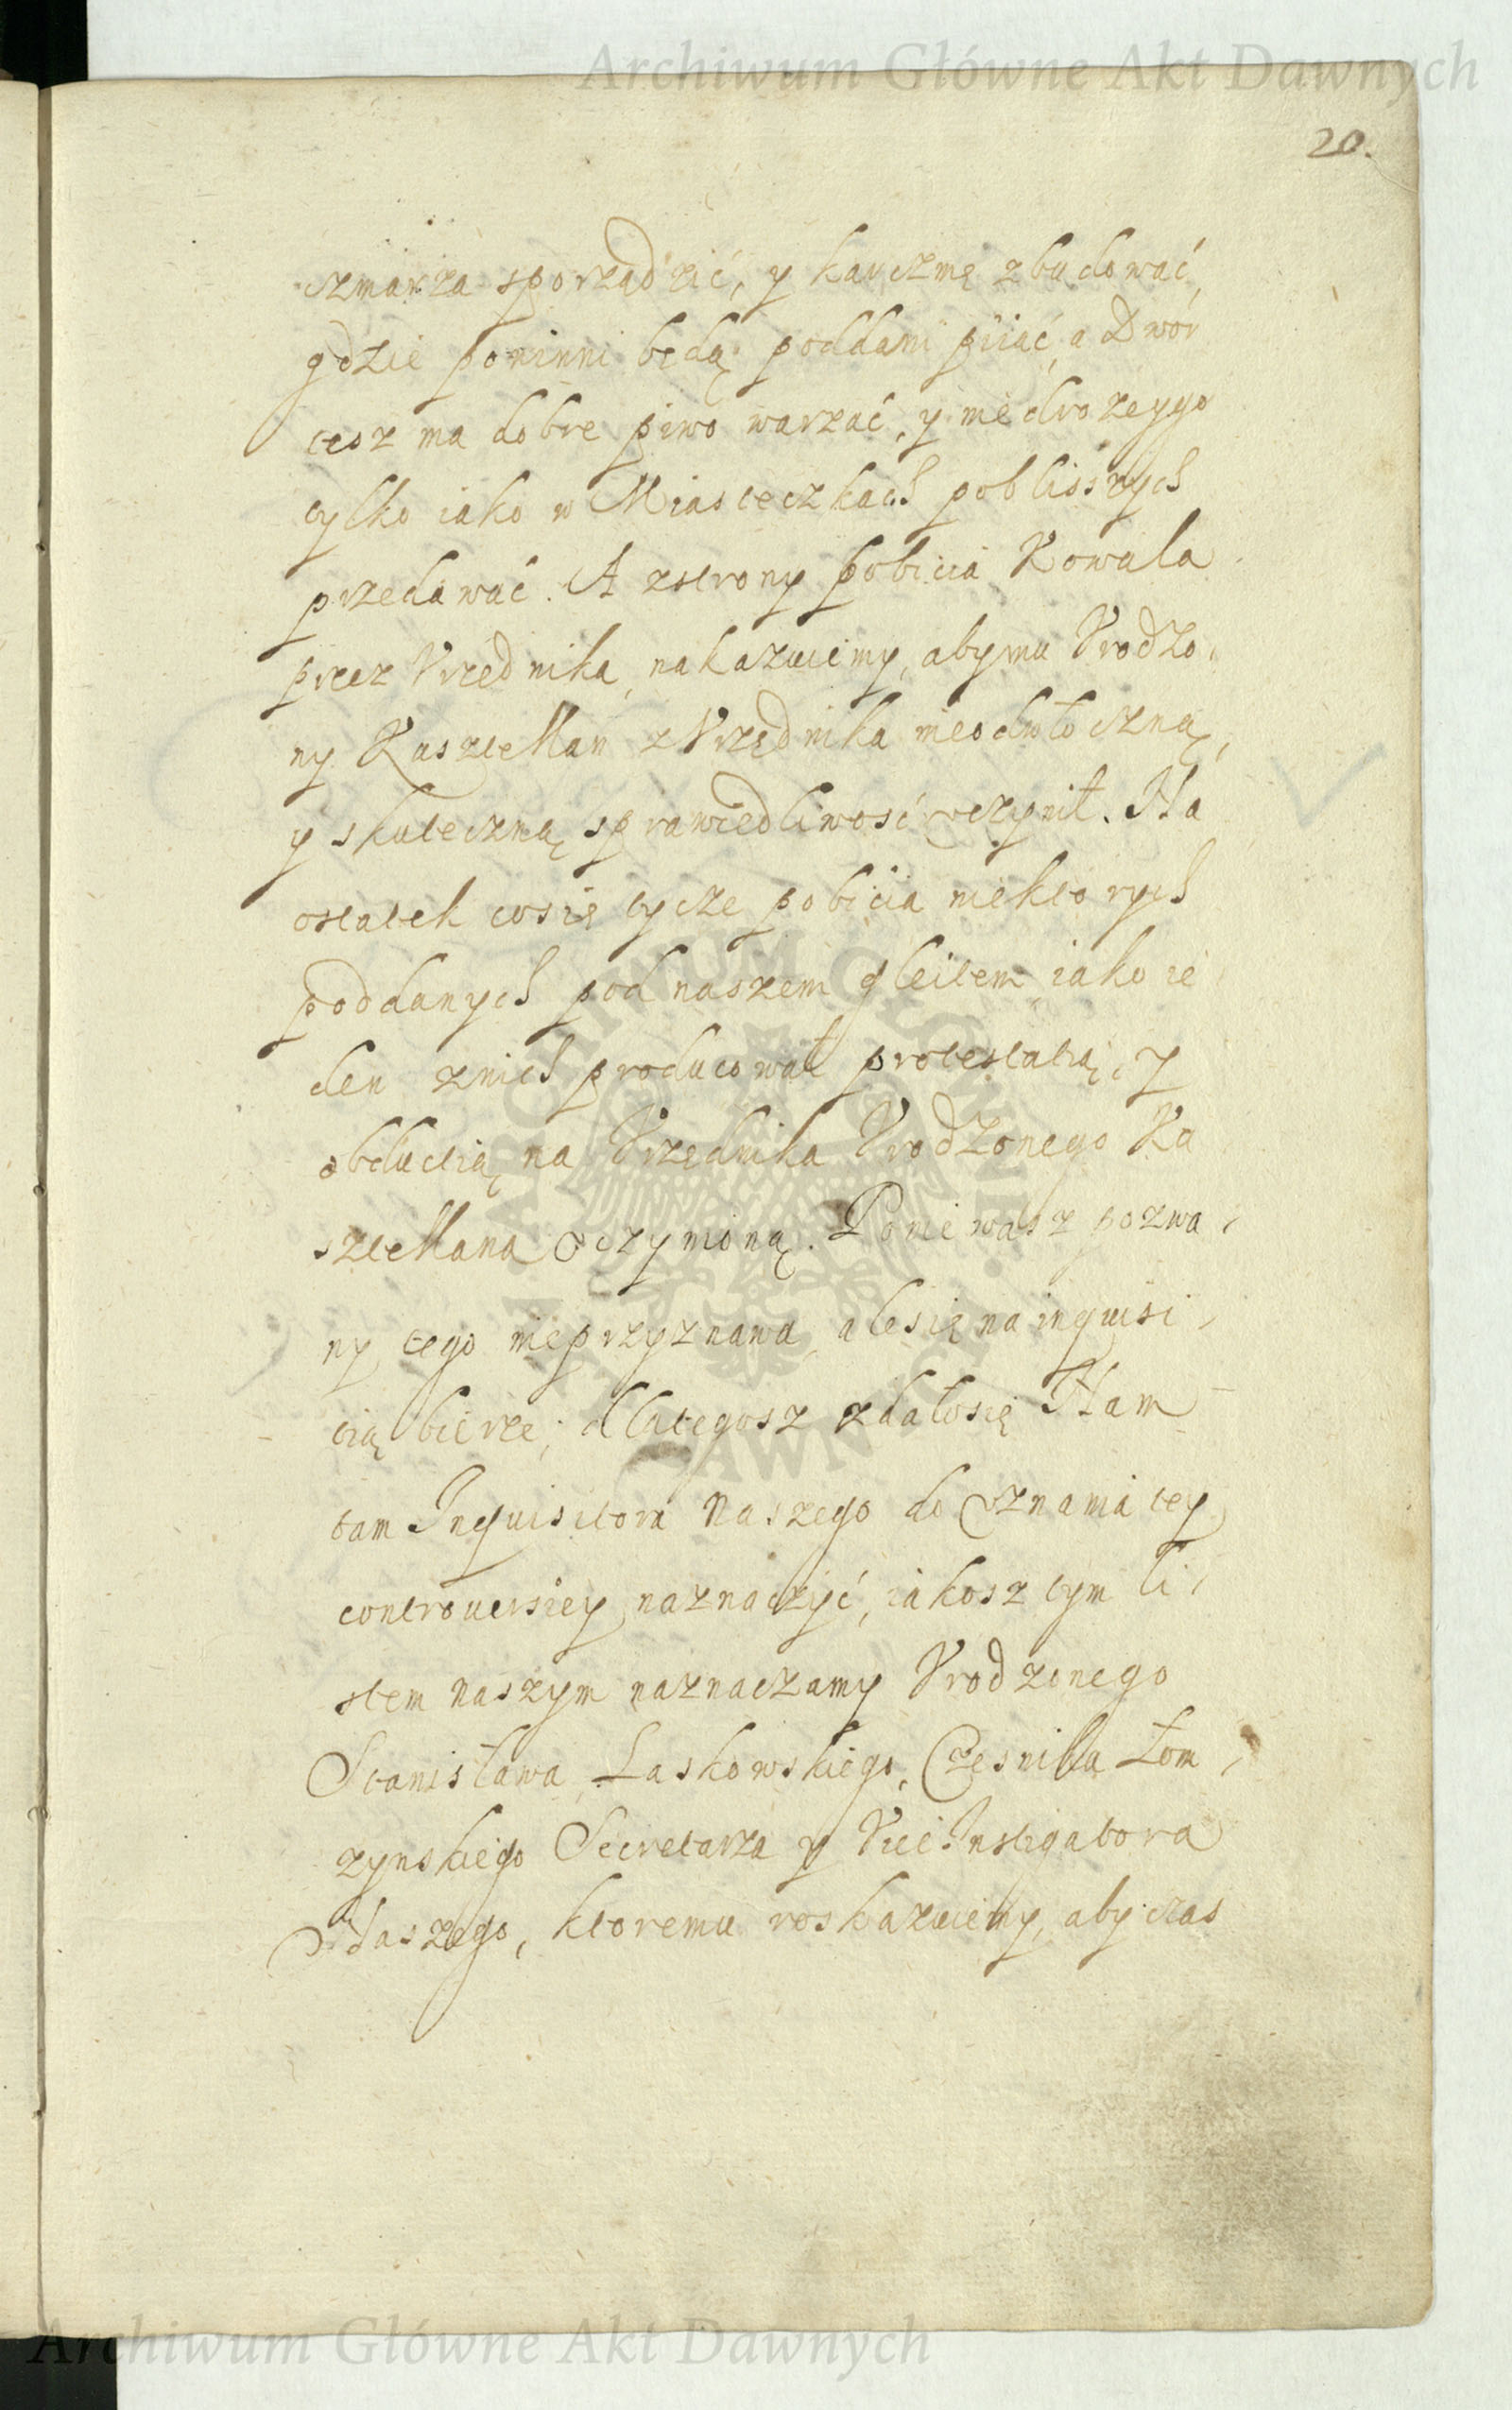 Archiwum Główne Akt Dawnych
20.
czmarza sporządzić, y karczmę zbudować,
gdzie powinni będą poddani piiać, a Dwor
tesz ma dobre piwo warzać, y niedrozeygo
tylko iako w Miasteczkach poblisszych
przedawać. A zstrony pobicia Kowala
przez Vrzędnika, nakazuiemy, abymu Vrodzo,
ny Kasztellan z Vrzędnika nieodwłoczną,
y skuteczną sprawiedliwość vczynił. Na
ostatek cosię tycze pobicia niektorych
poddanych pod naszem gleitem, iako ie
den znich producował protestatią, y
obductią na Vrzędnika Vrodzonego Ka
sztellana vczynioną. Poniewasz pozwa,
ny tego nieprzyznawa, alesię na inquisi,
tią bierze; dlategosz zdałosię Nam
tam Inquisitora Naszego do vznania tey
controuersiey naznaczyć, iakosz tym li,
stem Naszym naznaczamy Vrodzonego
Stanisława Laskowskiego, Czesnika Łom,
zynskiego Secretarza y ViceInstigatora
Naszego, ktoremu roskazuiemy, aby czas
ARCHIWUM GŁÓWNE AKT DAWNYCH
Archiwum Główne Akt Dawnych